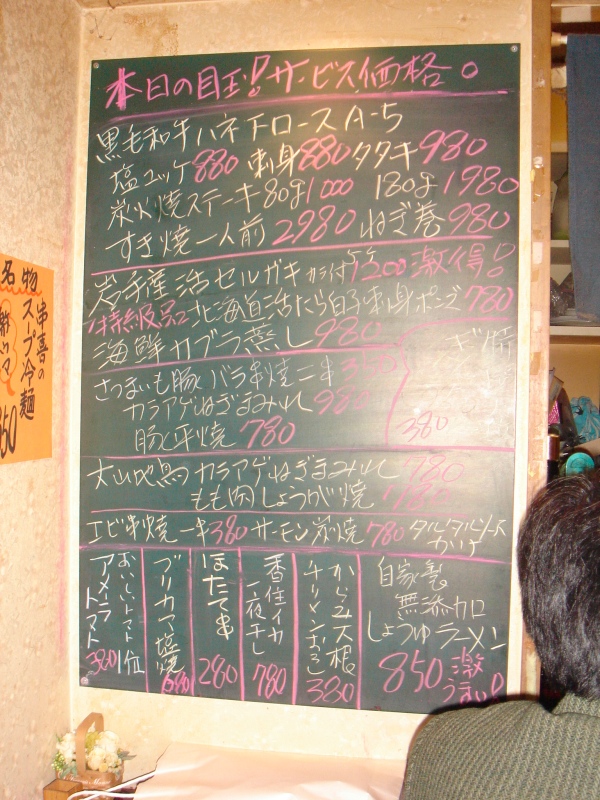 本日の目玉! サービス価格。
黒毛和牛ハネ下ロース A-5
塩ユッケ880 刺身880 タタキ980
炭火焼ステーキ80g 1000 180g 1980
すき焼一人前2980 ねぎ巻980
岩手産活セルガキ カラ付 1200 激得!
特級品 北海道活たら白子刺身ポンズ780
海鮮カブラ蒸し980
さつまいも豚バラ串焼二串
カラアゲねぎまみれ980
豚と平焼780
380
大山地鳥カラアゲねぎまみれ
もも肉しょうが焼
エビ串焼一串380 サーモン炭焼780 タルタルソース
かけ
おいしいトマト1位
アメーラ
トマト
380
ブリカマ塩焼
680
ほたて串
280
香住イカ
一夜干し
780
からみ大根
チリメンおろし
380
自家製
無添加
しょうゆラーメン
850 激
うまい!
名物
串喜の
スープ冷麺